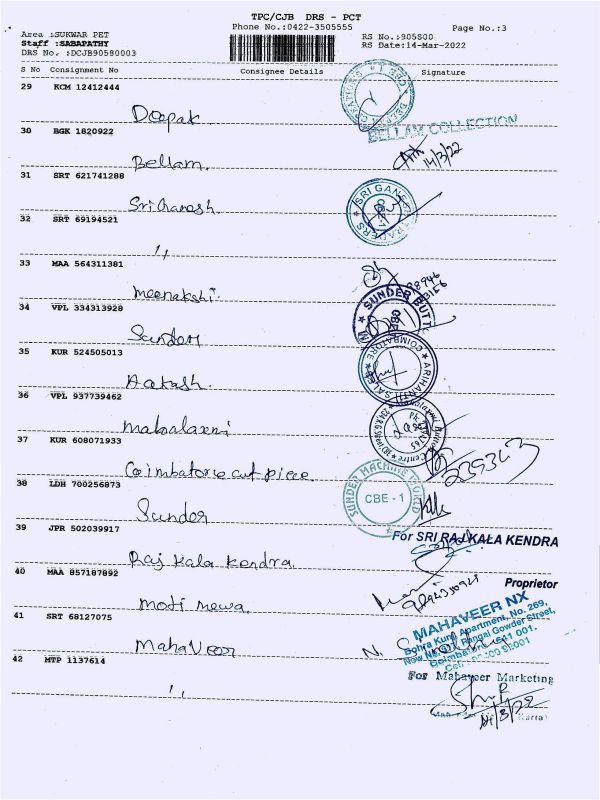 TPC/CJB DRS - PCT
Phone No.:0422-3505555
Page No.:3
Area :SUKWAR PET
RS No.:905800
Staff :SABAPATHY
RS Date:14-Mar-2022
DRS No. :DCJB90580003
S No Consignment No Consignee Details Signature
29 KCM 12412444
Deepak.
BELLAM COLLECTION
30 BGK 1820922
14/3/22
Bellam.
31 SRT 621741288
Sri Ganesh
SRI GANESH TRADERS
32 SRT 69194521
1,
33 MAA 564311381
Meenakshi.
34 VPL 334313928
SUNDER BUTT
Sunder
35 KUR 524505013
Aakash.
ARIHANTH SALES
COIMBATORE
36 VPL 937739462
Mahalaxmi
37 KUR 608071933
Coimbatore cut piece
38 LDH 700256873
SUNDER MACHINE WORLD
CBE - 1
Sunder
39 JPR 502039917
For SRI RAJ KALA KENDRA
Raj kala kendra.
40 MAA 857187892
Proprietor
Moti mewa.
41 SRT 68127075
MAHAVEER NX
Bohra Kung Apartment, No. 269,
Rangai Gowder Street,
Coimbatore - 641 001.
Mahaveer
42 MTP 1137614
For Mahaveer Marketing
1,